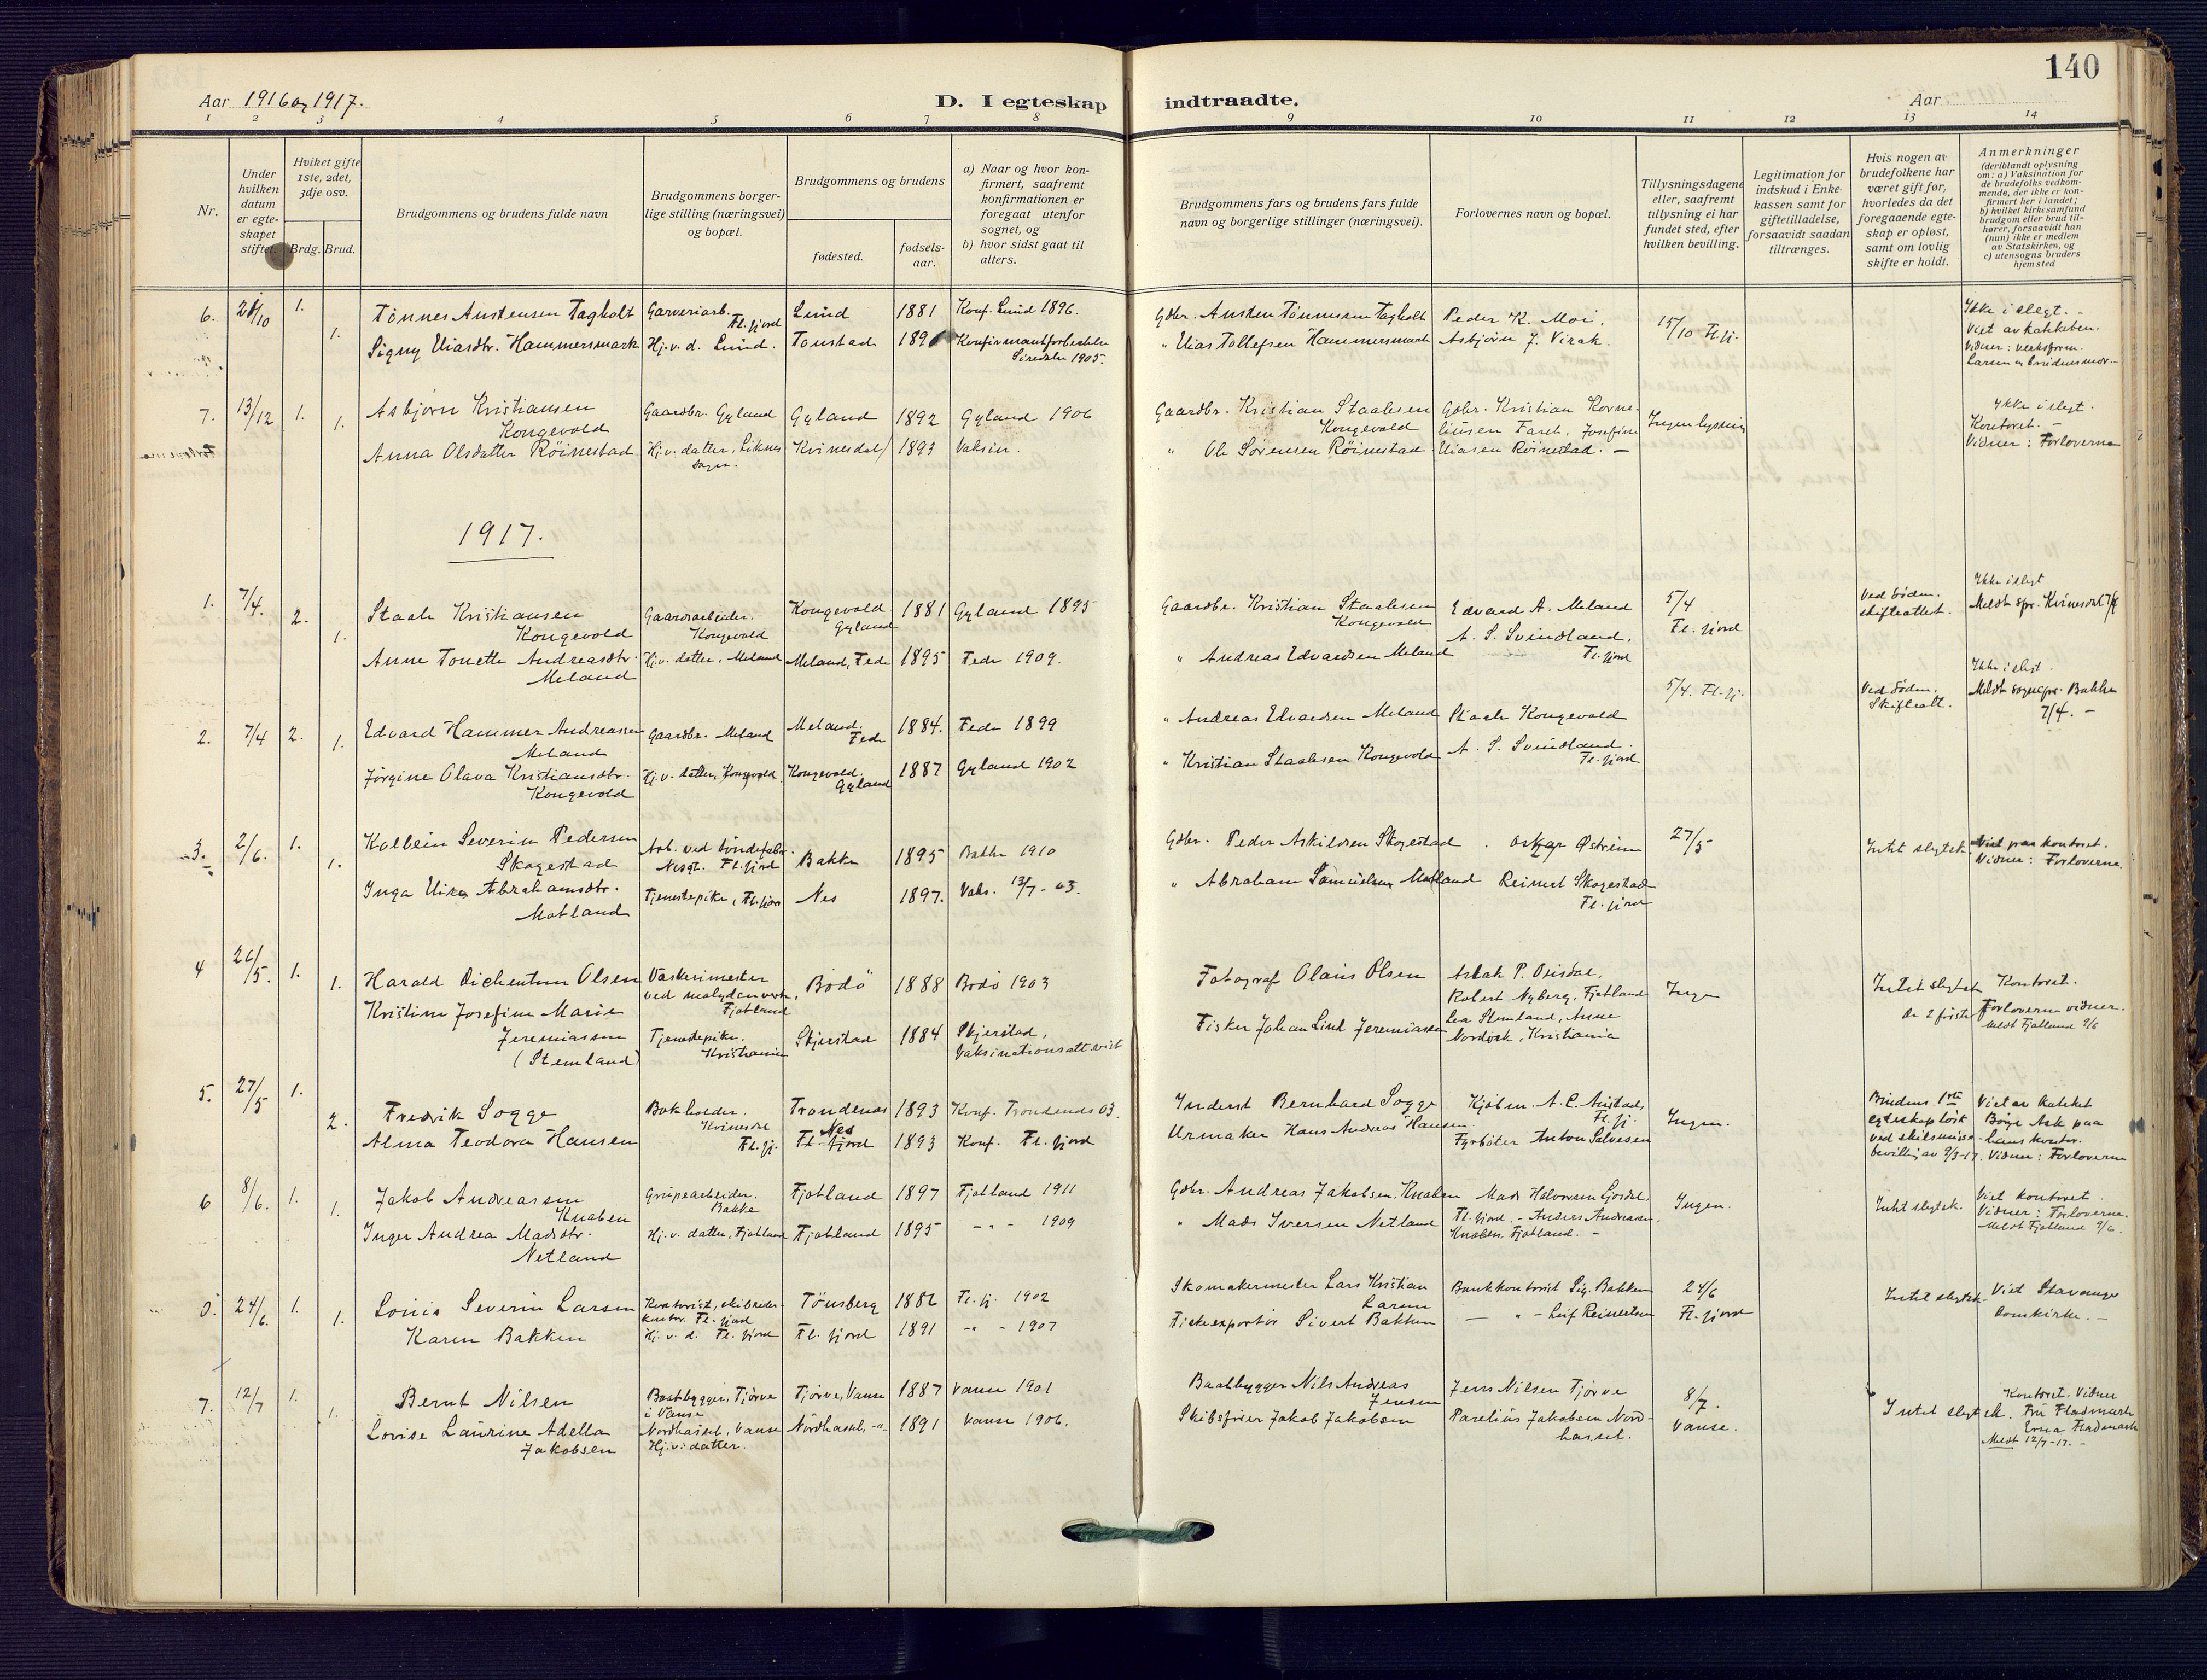 140
Aar 1916 og 1917.
D. I egteskap indtraadte.
Aar
1 2 3 4 5 6 7 8 9 10 11 12 13 14
Nr.
Under hvilken datum er egteskapet stiftet.
Hviket gifte 1ste, 2det, 3dje osv.
Brdg. Brud.
Brudgommens og brudens fulde navn
Brudgommens borgerlige stilling (næringsvei) og bopæl.
Brudgommens og brudens
fødested.
fødsels-aar.
a) Naar og hvor konfirmert, saafremt konfirmationen er foregaat utenfor sognet, og
b) hvor sidst gaat til alters.
Brudgommens fars og brudens fars fulde navn og borgerlige stillinger (næringsvei).
Forlovernes navn og bopæl.
Tillysningsdagene eller, saafremt tillysning ei har fundet sted, efter hvilken bevilling.
Legitimation for indskud i Enkekassen samt for giftetilladelse, forsaavidt saadan tiltrænges.
Hvis nogen av brudefolkene har været gift før, hvorledes da det foregaaende egteskap er opløst, samt om lovlig skifte er holdt.
Anmerkninger
(deriblandt oplysning om: a) Vaksination for de brudefolks vedkommende, der ikke er konfirmert her i landet; b) hvilket kirkesamfund brudgom eller brud tilhører, forsaavidt han (hun) ikke er medlem av Statskirken, og c) utensogns bruders hjemsted
6. 21/10 1. Tönnes Austensen Tagholt Garveriarb. Fl.fjord Lund 1881 Konf. Lund 1896. Gdbr. Austen Tönnessen Tagholt Peder K. Moi. 15/10 Fl.fj. Ikke i slegt. -
1. Signy Uiasdtr. Hammersmark Hj.v.d. Lund. Tonstad Konfirmantforberedelse Siredalen 1905. " Uias Tollefsen Hammersmark Asbjörn J. Virak. Viet av kateketen.
Vidner: verksform.
Larsen og brudens mor. -
7. 13/12 1. 1. Asbjørn Kristiansen Kongevold Gaardbr. Gyland Gyland 1892 Gyland 1906 Gaardbr. Kristian Staalesen Kongevold Gdbr. Kristian Korneliusen Faret. Josefine Ingen lysning Ikke i slegt.
Kontoret. -
Anna Olsdatter Röinestad Hj.v. datter, Liknes sogn. Kvinesdal 1893 Vaksin. " Ole Sörensen Röinestad Uiasen Röinestad. - Vidner: Forloverne
1917.
1. 7/4. 2. 1. Staale Kristiansen Kongevold Gaardarbeider. Kongevold Kongevold Gyland 1881 Gyland 1895 Gaardbr. Kristian Staalesen Kongevold Edvard A. Meland 5/4 Fl.fjord Ved döden. skifteattest. Ikke i slegt
Meldt spr. Kvinesdal 7/4
Anne Tonette Andreasdtr. Meland Hj.v. datter, Meland Meland, Feda 1895 Feda 1909. " Andreas Edvardsen Meland A. S. Svindland, Fl.fjord
2. 7/4 2. 1. Edvard Hammer Andreassen Meland Gaardbr. Meland Meland. Feda 1884. Feda 1899 " Andreas Edvardsen Meland Staale Kongevold 5/4. Fl.fj. Ved döden. Skifteatt. Ikke i slegt.
Meldt sognepr. Bakke 7/4. -
Jörgine Olava Kristiansdtr. Kongevold Hj.v. datter, Kongevold Kongevold. Gyland 1887 Gyland 1902 " Kristian Staalesen Kongevold A. S. Svindland. Fl.fjord
3. 2/6. 1. 1. Kolbein Severin Pedersen Skogestad Arb. ved töndefabr. Nesgt. Fl.fjord Bakke 1895 Bakke 1910 Gdbr. Peder Askildsen Skogestad Oskar Østreim 27/5 Intet slegtsk. Viet paa kontoret.
Vidner: Forloverne.
Inga Abrahamsdtr. Motland Tjenestepike, Fl.fjord Nes 1897. Vaks. 13/7-03. " Abraham Samuelsen Motland Reinert Skogestad Fl.fjord
4 26/5. 1. 1. Harald Olsen Vaskerimester ved molydenverk, Fjotland Bodö 1888 Bodö 1903 Fotograf Olaus Olsen Aslak P. Ousdal, Robert Nyberg, Fjotland Ingen Intet slegtsk Kontoret.
De 2 första Forlovere vidner.
Meldt Fjotland 9/6
Kristine Josefine Marie Jeremiassen (Stemland) Tjenestepike. Kristiania Skjerstad 1884 Skjerstad, Vaksinationsatt. Fisker Johan Lind Jeremiassen Lea Stemland, Anne Nordvik, Kristiania
5. 27/5 1. 2. Fredrik Sogge Bokholder. Kvinesdal Trondenes 1893 Konf. Trondenes 03. Inderst Bernhard Sogge Kjöbm. A. C. Austad, Fl.fj. Ingen. Brudens 1ste egteskap löst ved skilsmisse-bevilling av 9/3-17. Viet av Katekel Börge Ask paa hans kontor. Vidner: Forloverne
Alma Teodora Hansen Fl.fj. Nes Fl.fjord 1893 Konf. Fl.fjord Urmaker Hans Andreas Hansen. Fyrböter Anton Salvesen
6 8/6. 1. 1. Jakob Andreassen Knaben Grupearbeider. Bakke Fjotland 1897 Fjotland 1911 Gdbr. Andreas Jakobsen, Knaben Mads Halvorsen Fl.fjord - Anders Andreassen. Ingen. Intet slegtsk. Viet kontoret.
Vidner: Forloverne.
Meldt Fjotland 9/6.
Inger Andrea Madsdtr. Netland Hj.v. datter, Fjotland Fjotland 1895 - " - 1909 " Mads Iversen Netland Knaben, Fjotland. -
0. 24/6. 1. 1. Louis Severin Larsen Kontorist, skibsreder-kontor. Fl.fjord Tönsberg 1886 Fl.fj. 1902 Skomakermester Lars Kristian Larsen Bankkontorist Sig. Bakken 24/6 Fl.fjord Intet slegtsk- Viet Stavanger Domkirke. -
Karen Bakken Hj.v.d. Fl.fjord Fl.fjord 1891 - " - 1907 Fiskeexportör Sivert Bakken — " - Leif Reinertsen
7. 12/7 1. 1. Bernt Nilsen Baatbygger, Tjörve i Vanse Tjörve, Vanse 1887 Vanse 1901 Baatbygger Nils Andreas Jensen Jens Nilsen Tjörve 8/7. Vanse. Intet slegtsk. Kontoret. Vidner
Fru Fladmark
Erna Fladmark
Meldt 12/7-17. -
Lovise Laurine Adella Jakobsen Nordhassel, Vanse Hj.v. datter. Nordhassel, -"- 1891 Vanse 1906. Skibsfører Jakob Jakobsen Parelius Jakobsen Nordhassel.